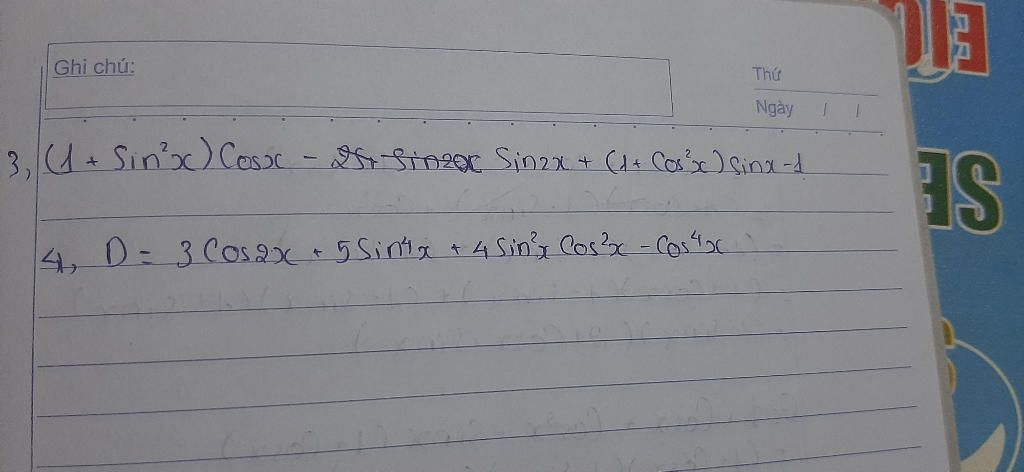 EIC
Ghi chú:
Thứ
Ngày / /
3, (1 + Sin²x) Cosx - Sin2x + (1 + Cos²x) Sinx - 1
SE
4, D = 3 Cos2x + 5 Sin⁴x + 4 Sin²x Cos²x - Cos⁴x